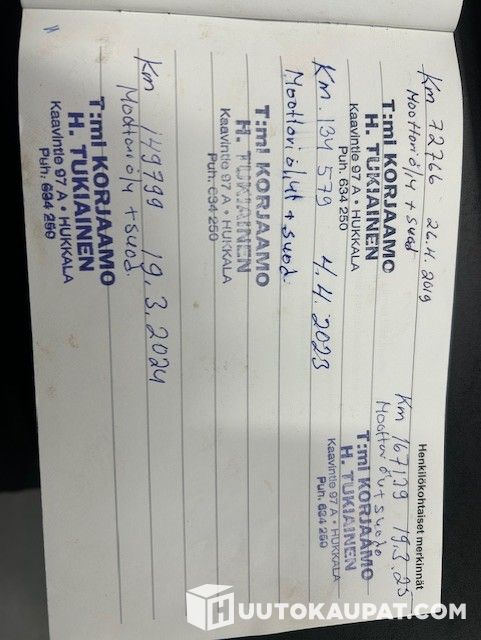 Henkilökohtaiset merkinnät
Km 72766 26.4.2019
Moottoriöly + suod
T:mi KORJAAMO
H. TUKIAINEN
Kaavintie 97 A • HUKKALA
Puh. 634 250
Km 167129 19.3.25
T:mi KORJAAMO
H. TUKIAINEN
Kaavintie 97 A • HUKKALA
Puh. 634 250
Km. 134 579 4.4.2023
Moottoriöljyt + suod.
T:mi KORJAAMO
H. TUKIAINEN
Kaavintie 97 A • HUKKALA
Puh. 634 250
Km 149799 19.3.2024
Moottoriöly + suod.
T:mi KORJAAMO
H. TUKIAINEN
Kaavintie 97 A • HUKKALA
Puh. 634 250
HUUTOKAUPAT.COM